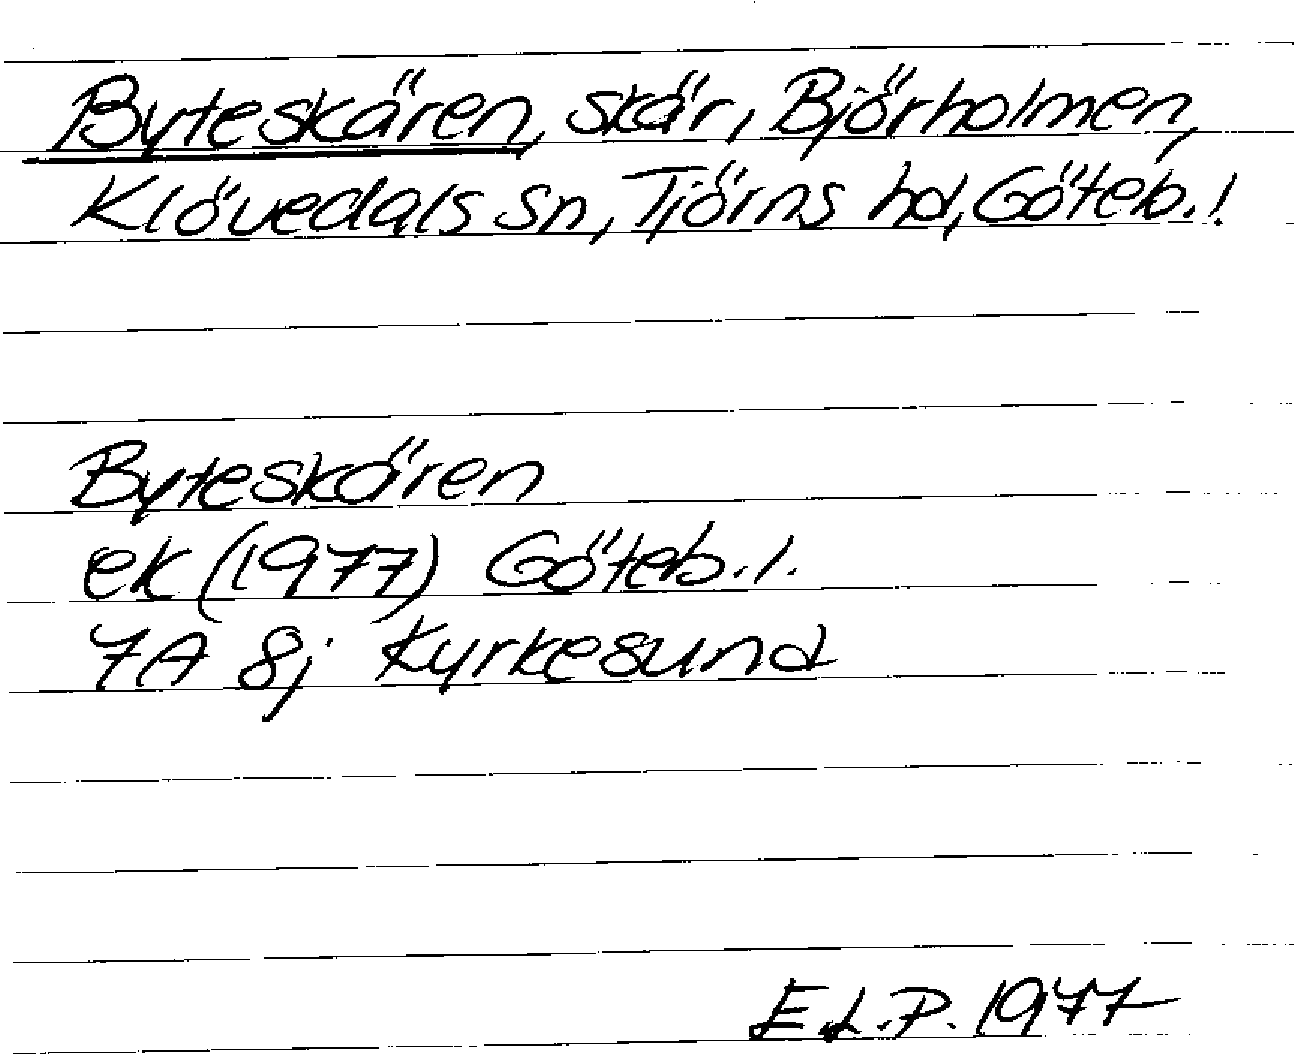 Byteskären, skär, Björholmen,
Klövedals sn, Tjörns hd, Göteb. l.
Byteskären
ek (1977) Göteb. l.
7A 8j Kyrkesund
E.L.P. 1977